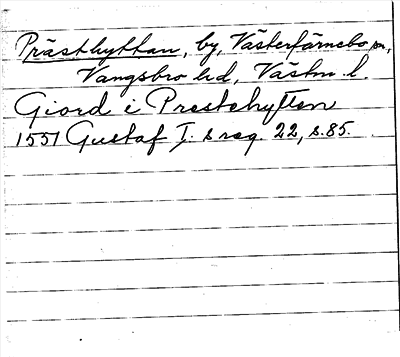 Prästhyttan, by, Västerfärnebo sn,
Vangsbro hd, Västm. l.
Giord i Prestehytten
1551 Gustaf I:s reg. 22, s. 85.